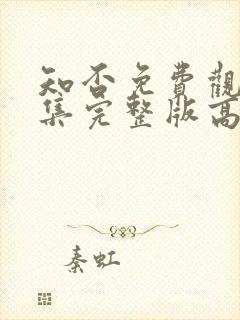 知否免費觀
集完整版高
秦虹